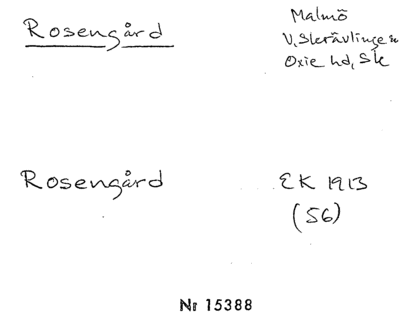 Rosengård
Malmö
V. Skrävlinge sn
Oxie hd, Sk
Rosengård
EK 1913
(56)
Nr 15388